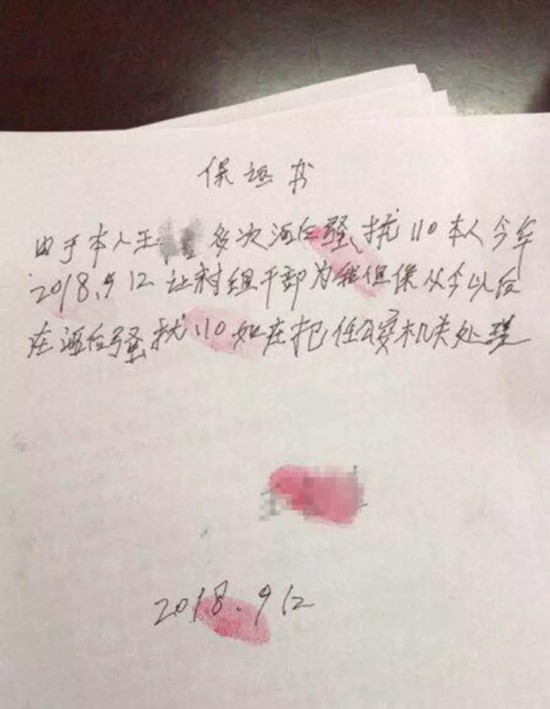 保证书
由于本人王 多次酒后骚扰110本人今年
2018.9.12让村组干部为我但保从今以后
在酒后骚扰110如在扰任公安机关处理
2018.9.12